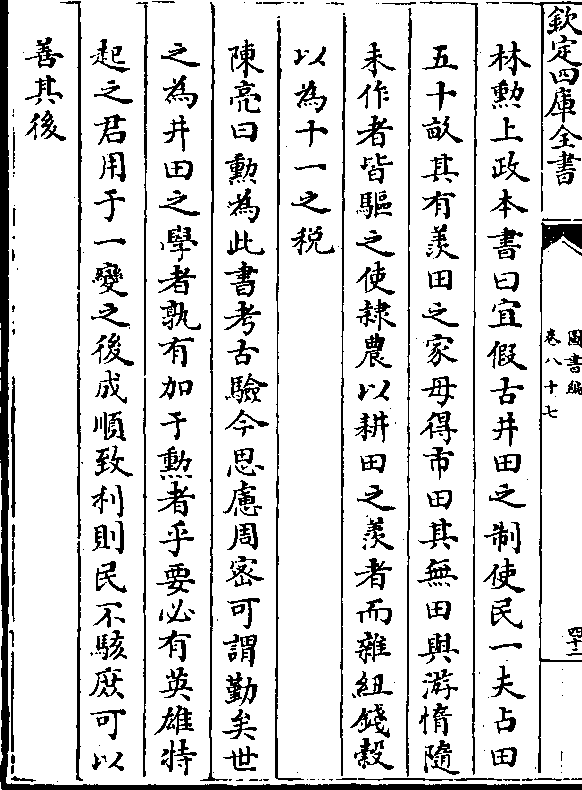 欽定四庫全書
圖書編
卷八十七
四十二
林勲上政本書曰宜假古井田之制使民一夫占田
五十畝其有羡田之家毋得市田其無田與游惰隨
耒作者皆驅之使隸農以耕田之羡者而雜紐錢穀
以為十一之税
陳亮曰勲為此書考古驗今思慮周密可謂勤矣世
之為井田之學者孰有加于勲者乎要必有英雄特
起之君用于一變之後成順致利則民不駭庶可以
善其後